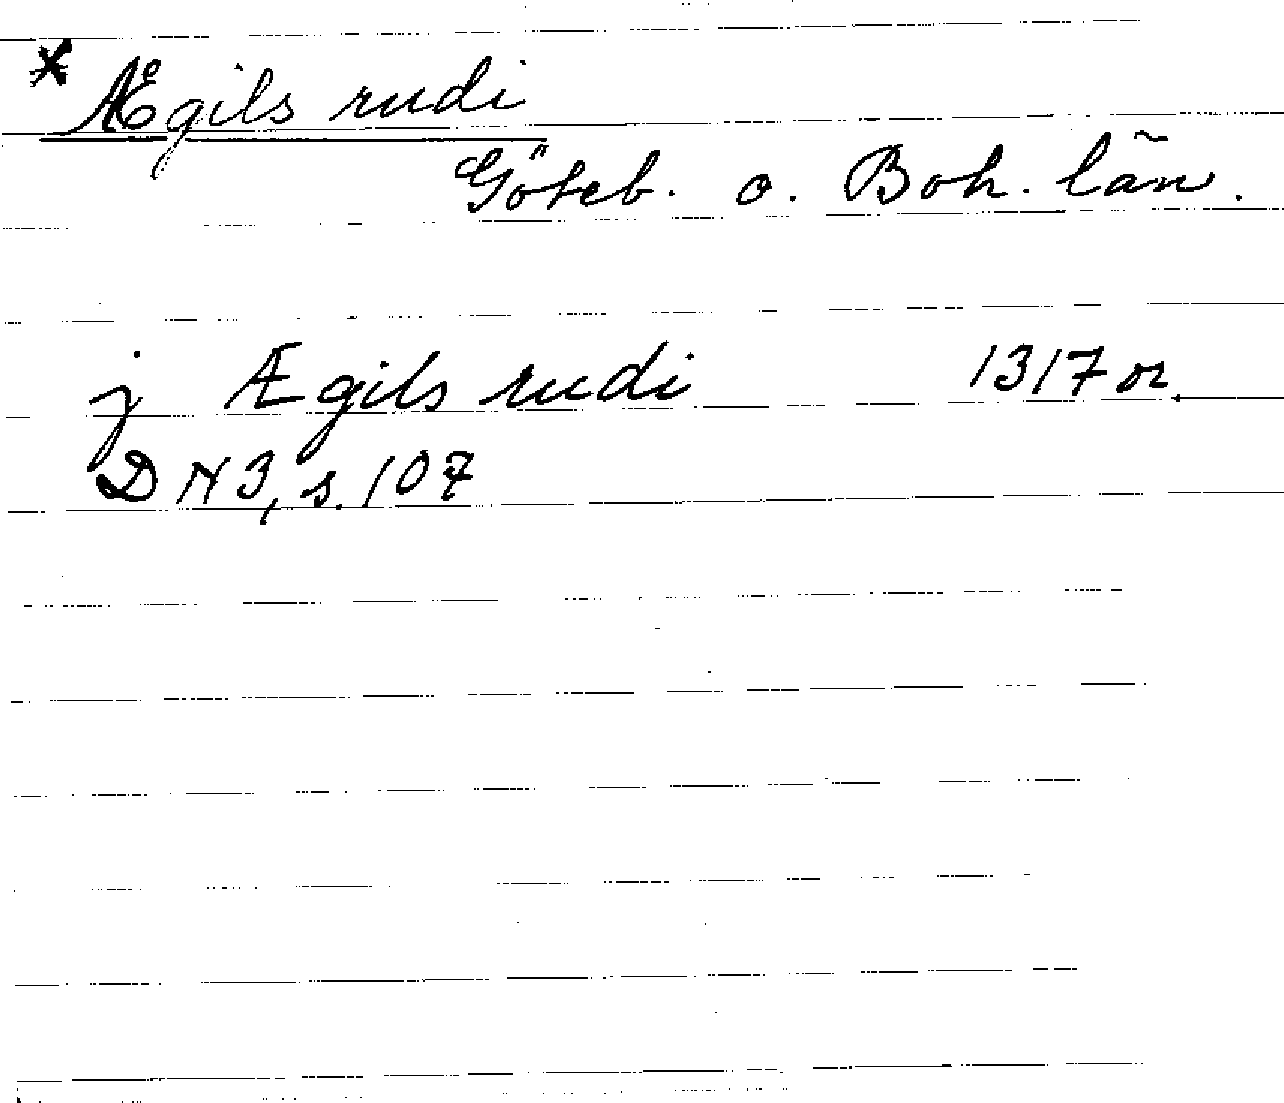 * Ægils rudi
Göteb. o. Boh. län.
j Ægils rudi 1317 or.
DN 3, s. 107